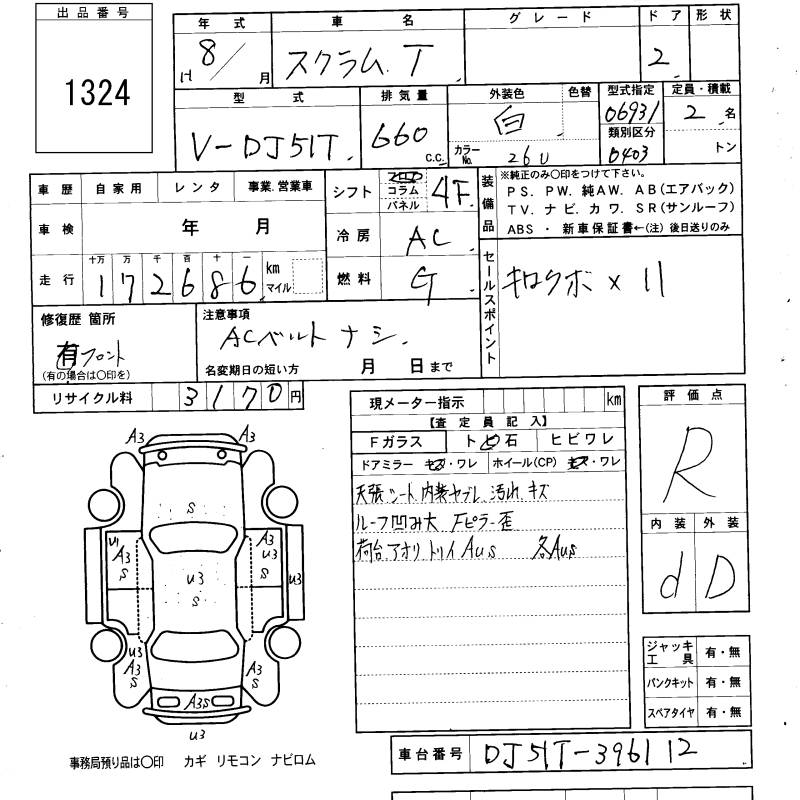 出品番号
1324
年式 車名 グレード ドア 形状
H 8/ 月 スクラム T 2
型式 排気量 外装色 色替 型式指定 定員・積載
V-DJ51T 660 C.C. 白 06931 2 名
カラーNo. 26U 類別区分 0403 トン
車歴 自家用 レンタ 事業.営業車
シフト コラム パネル 4F
装備品 ※純正のみ〇印をつけて下さい。
PS. PW. 純AW. AB(エアバック)
TV. ナビ. カワ. SR(サンルーフ)
ABS ・ 新車保証書←(注) 後日送りのみ
車検 年 月
冷房 AC
走行 十万 万 千 百 十 一 km マイル
172686
燃料 G
セールスポイント キロクボ×11
修復歴 箇所
有 フロント
(有の場合は〇印を)
注意事項
ACベルト ナシ.
名変期日の短い方 月 日まで
リサイクル料 3170円
現メーター指示 km
【査定員記入】
Fガラス トビ石 ヒビワレ
ドアミラー キズ・ワレ ホイール(CP) キズ・ワレ
天張シート内装ヤブレ 汚れ キズ
ルーフ凹み大 Fピラー歪
荷台アオリトリイAus 各Aus
評価点
R
内装 外装
d D
A3 A3
S
U1 A3 S
A3 U3 S
U3 S
U3
U3 A3 S
A3 S
A3S
U3
ジャッキ工具 有・無
パンクキット 有・無
スペアタイヤ 有・無
車台番号 DJ51T-396112
事務局預り品は〇印 カギ リモコン ナビロム